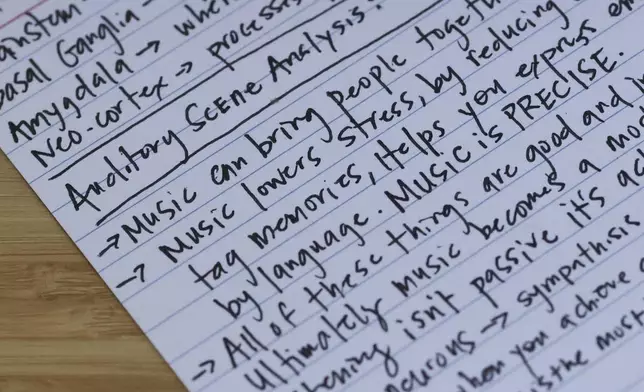 Basal Ganglia →
Amygdala → when
Neo-cortex → processes
Auditory Scene Analysis:
→ Music can bring people together
→ Music lowers stress, by reducing
tag memories, Helps you express
by language. Music is PRECISE.
→ All of these things are good and
Ultimately music becomes a
isn't passive it's
neurons → sympathisis
when you achieve
the most